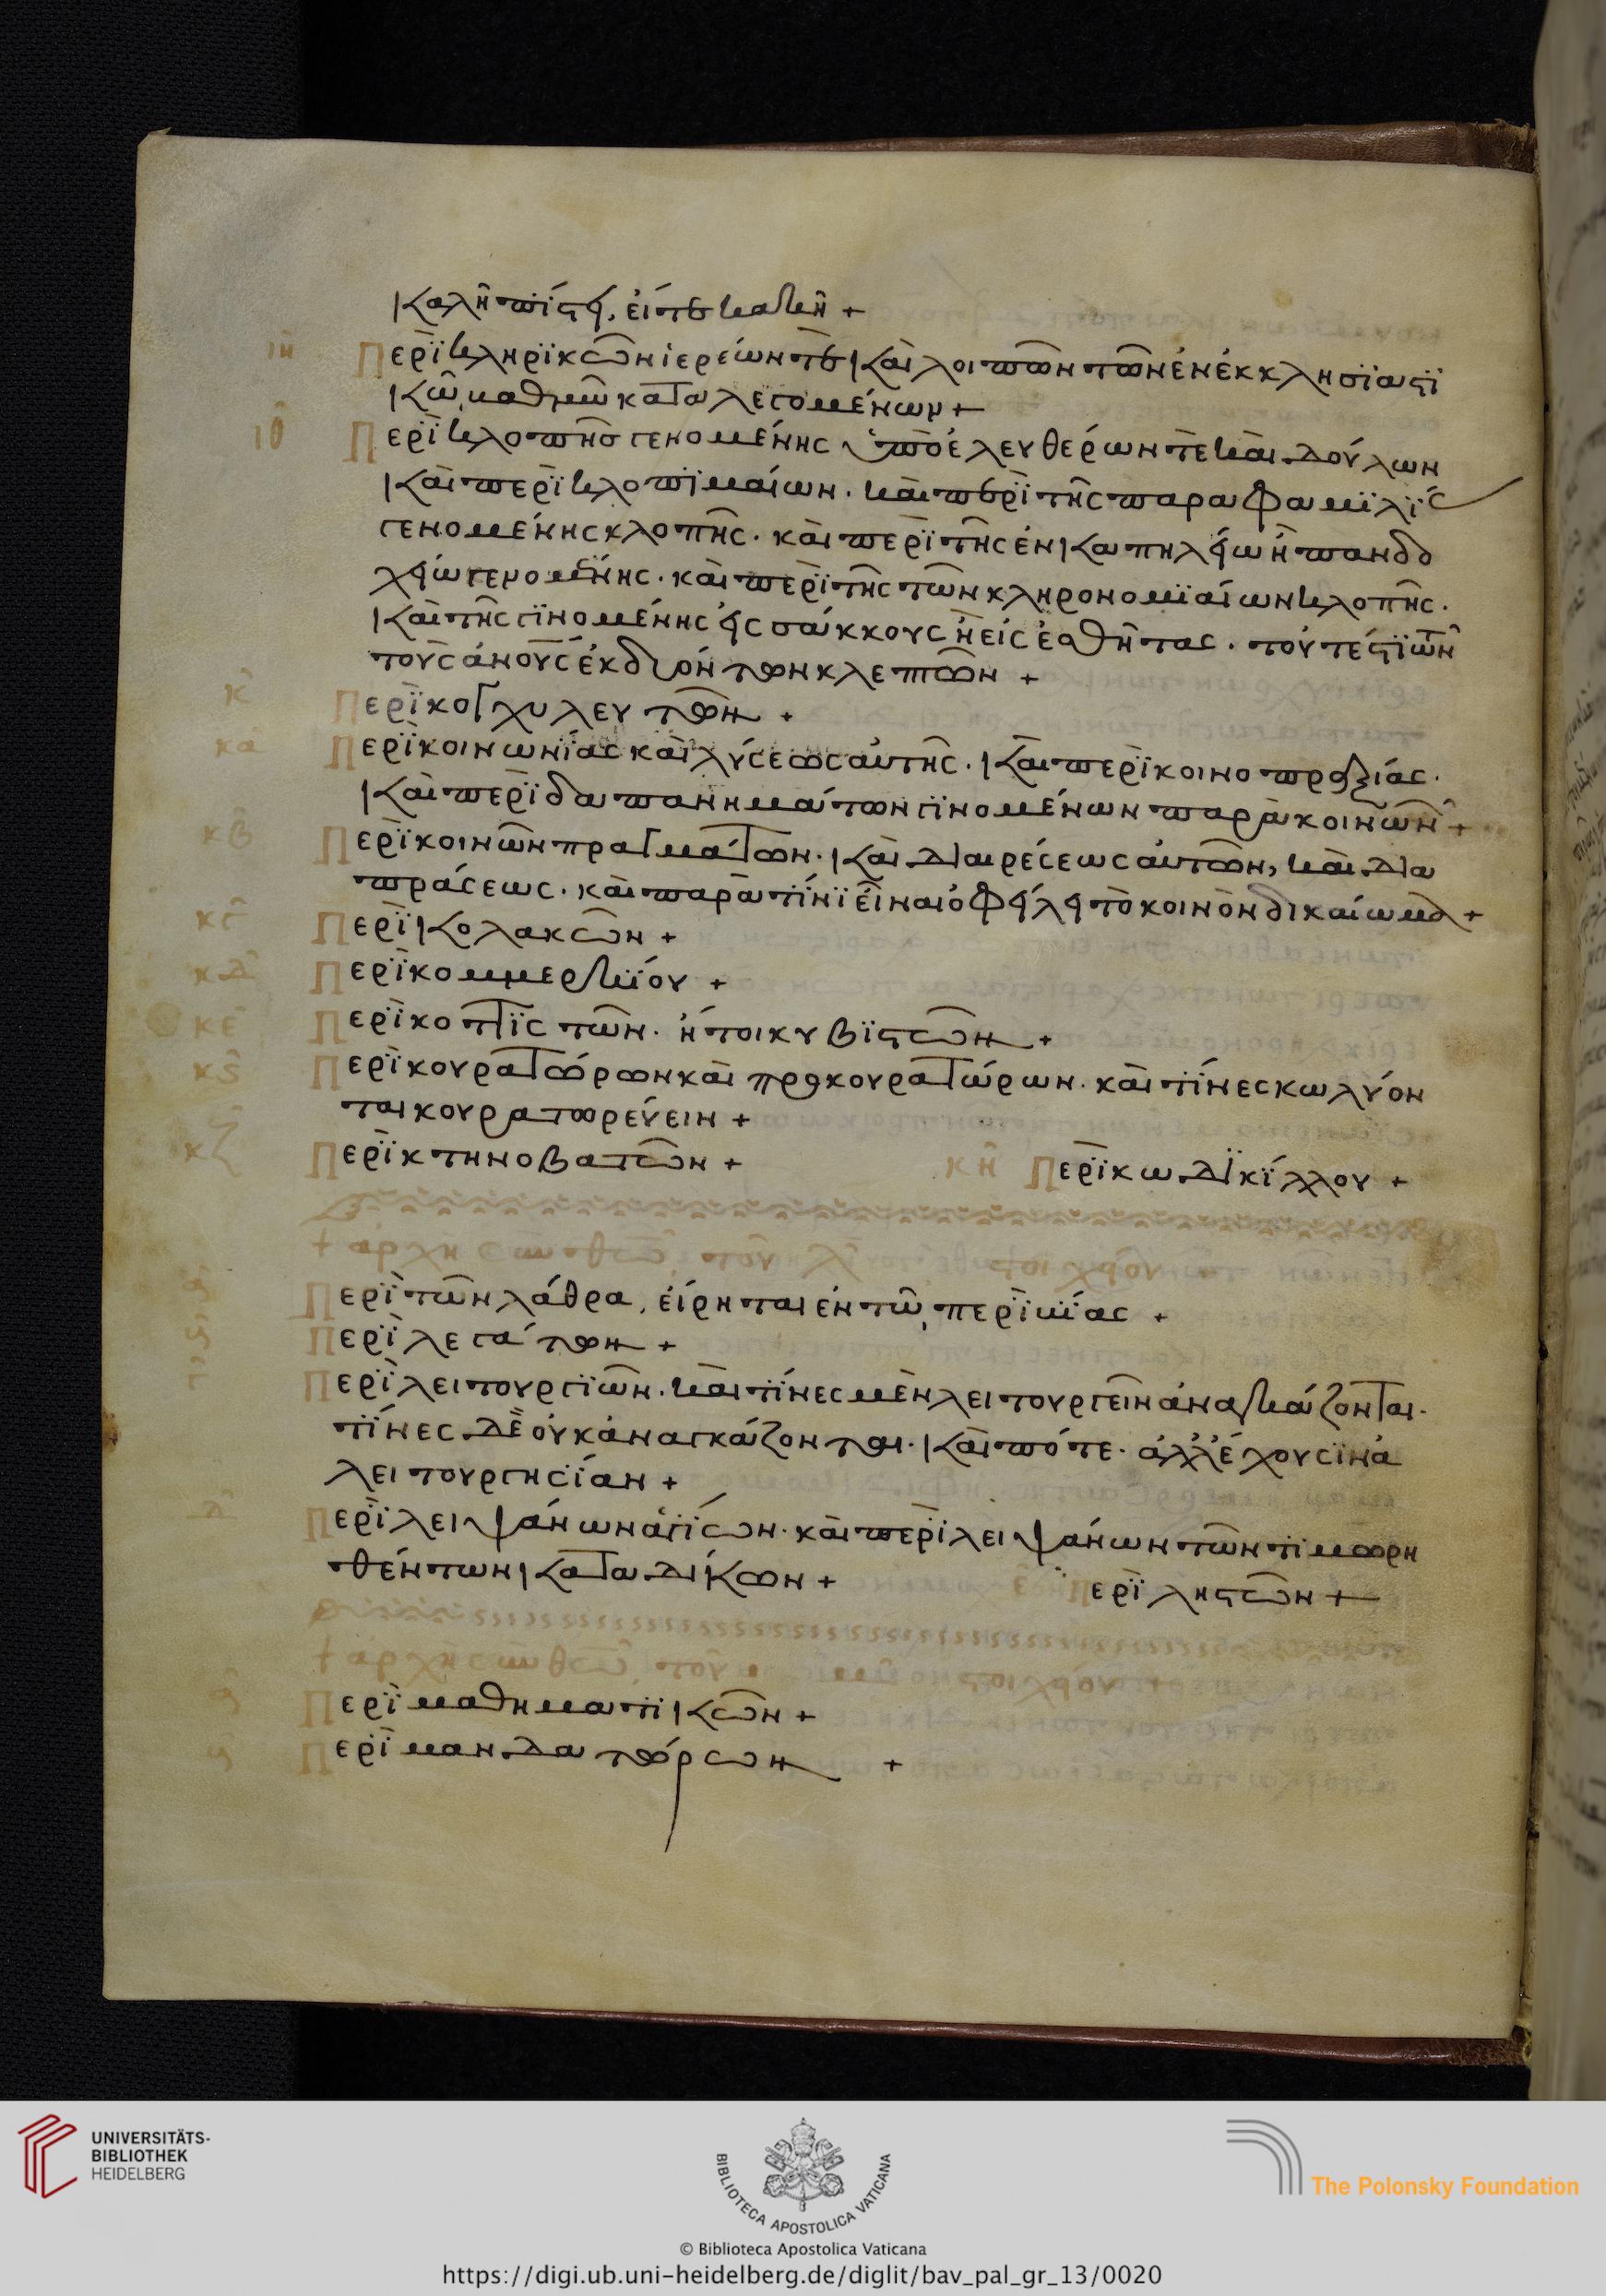 καλῆ πίστει, εἴτε κακῆ +
ιη Περὶ κληρικῶν ἱερέων τε καὶ λοιπῶν τῶν ἐν ἐκκλησιαστι
κῶ καταλεγομένων +
ιθ Περὶ κλοπῆς γενομένης ὑπὸ ἐλευθέρων τε καὶ δούλων
καὶ περὶ κλοπιμαίων. καὶ περὶ τῆς παρα φαμιλίας
γενομένης κλοπῆς. καὶ περὶ τῆς ἐν καπηλείω ἢ πανδο
χείω γενομένης. καὶ περὶ τῆς τῶν κληρονομιαίων κλοπῆς.
καὶ τῆς γινομένης εἰς σάκκους ἢ εἰς ἐσθῆτας. τουτέστι τῶν
τοὺς ἀνους ἐκδυόντων κλεπτῶν +
κ Περὶ κογχυλευτῶν +
κα Περὶ κοινωνίας καὶ λύσεως αὐτῆς. καὶ περὶ κοινοπραξίας.
καὶ περὶ δαπανημάτων γινομένων παρὰ κοινωνῶν +
κβ Περὶ κοινῶν πραγμάτων. καὶ διαιρέσεως αὐτῶν, καὶ δια
πράσεως. καὶ παρὰ τίνι εἶναι ὀφείλει τὸ κοινὸν δικαίωμα +
κγ Περὶ κολακῶν +
κδ Περὶ κομμερκίου +
κε Περὶ κοττιστῶν. ἤτοι κυβιστῶν +
κς Περὶ κουρατώρων καὶ προκουρατώρων. καὶ τίνες κωλύον
ται κουρατωρεύειν +
κζ Περὶ κτηνοβατῶν + κη Περὶ κωδικίλλου +
+ ἀρχὴ σὺν θεῶ τοῦ λ στοιχείου
Περὶ τῶν λάθρα, εἴρηται ἐν τῶ περὶ βίας +
Περὶ λεγάτων +
Περὶ λειτουργιῶν. καὶ τίνες μὲν λειτουργεῖν ἀναγκάζονται.
τίνες δὲ οὐκ ἀναγκάζονται. καὶ πότε. ἀλλ ἔχουσιν ἀ
λειτουργησίαν +
δ Περὶ λειψάνων ἁγίων. καὶ περὶ λειψάνων τῶν τιμωρη
θέντων καταδίκων + ε Περὶ ληστῶν +
+ ἀρχὴ σὺν θεῶ τοῦ μ στοιχείου
Περὶ μαθηματικῶν +
Περὶ μανδατόρων +
UNIVERSITÄTS-
BIBLIOTHEK
HEIDELBERG
BIBLIOTECA APOSTOLICA VATICANA
The Polonsky Foundation
© Biblioteca Apostolica Vaticana
https://digi.ub.uni-heidelberg.de/diglit/bav_pal_gr_13/0020